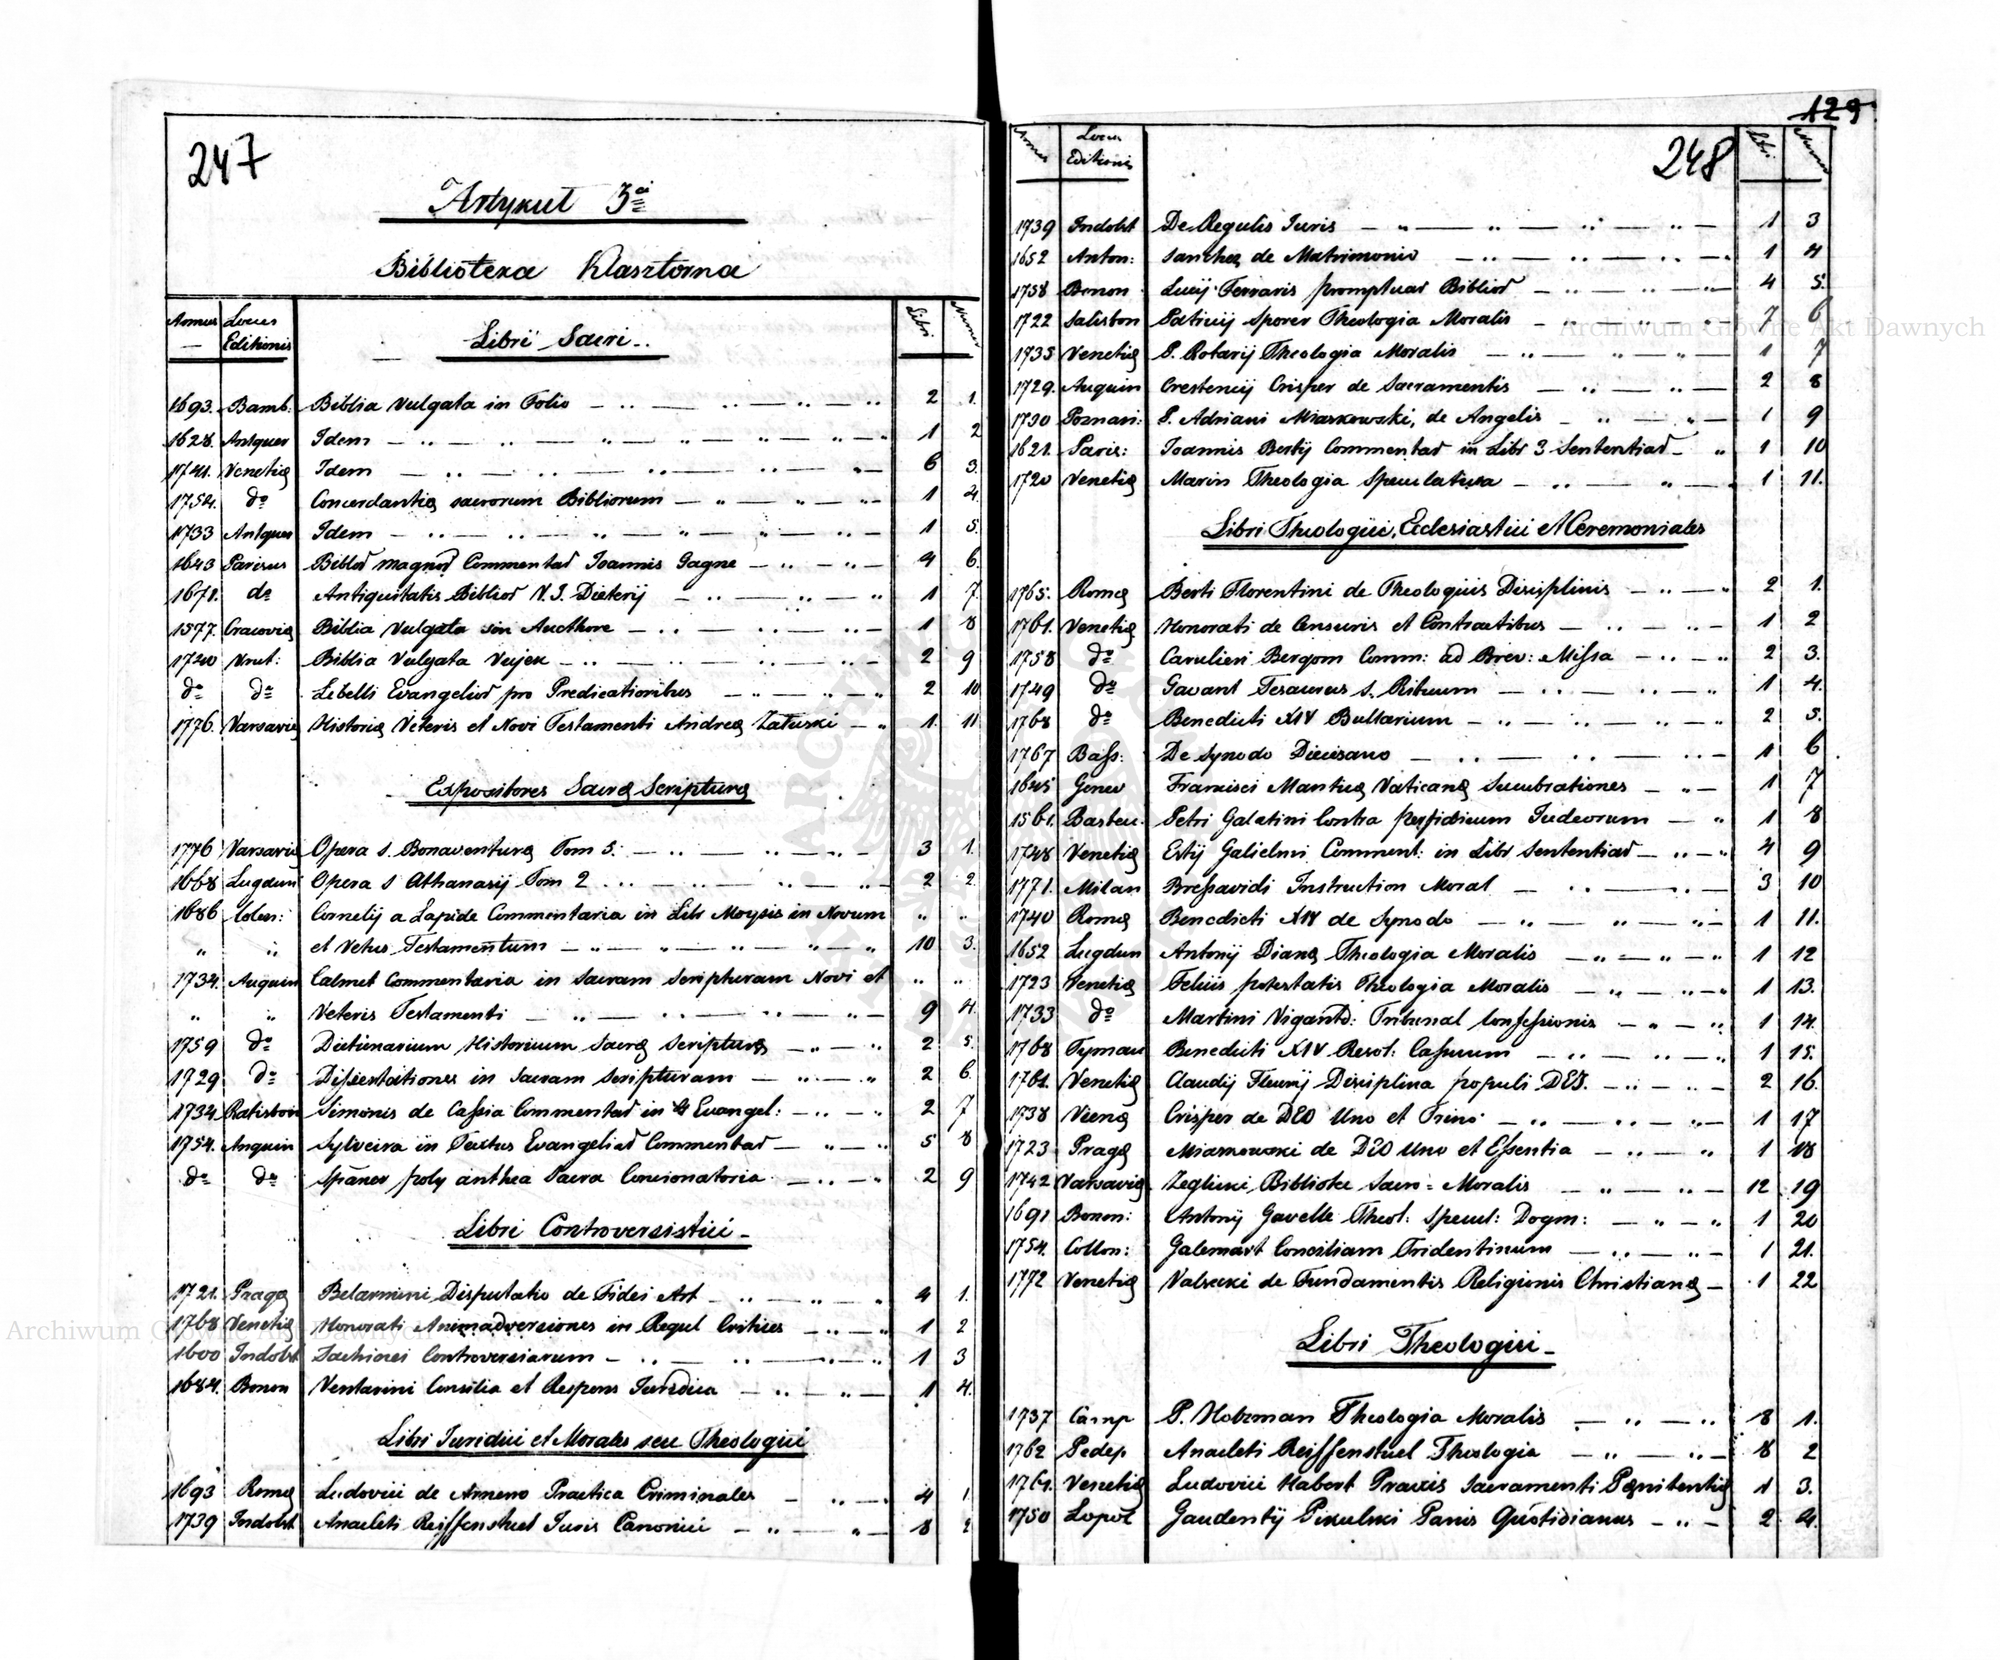 247
Artykuł 3ci
Biblioteka Klasztorna
Annus Locus Editionis Libri Sacri Libri Numer
1693. Bamb. Biblia Vulgata in Folio 2 1.
1628. Antquer Idem 1 2
1741. Venetię Idem 6 3.
1754. do Concordantię sacrorum Bibliorum 1 4.
1733 Antquer Idem 1 5.
1643 Parisus Commentar Joannis Gagne 4 6.
1671. do Antiquitatis Biblior 1 7.
1577. Cracovię Biblia Vulgata sin Aucthore 1 8
1740 Biblia Vulgata Vujek 2 9
do do Libelli Evangelior pro Predicationibus 2 10
1776. Varsavię Historię Veteris et Novi Testamenti Andreę Załuski 1. 11
Expositores Sacrę Scripturę
1776 Varsavię Opera s. Bonaventurę Tom 5: 3 1.
1668 Lugduni Opera S Athanasij Tom 2 2 2.
1686 Colon: Cornelij a Lapide Commentaria in Libr Moysis in Novum
" " et Vetus Testamentum 10 3.
1734. Auguin Calmet Commentaria in Sacram Scripturam Novi et
" " Veteris Testamenti 9 4.
1759 do Dictionarium Historicum Sacrę Scripturę 2 5.
1729 do Dissertationes in Sacram Scripturam 2 6.
1734 Ratisbon Simonis de Cassia Commentar in 4 Evangel: 2 7
1754. Auguin Sylveira in Textus Evangeliar Commentar 5 8
do do Spaner poly anthea Sacra Concionatoria 2 9
Libri Controversistici
1721. Pragę Belarmini Disputatio de Fidei Art 4 1.
1768 Venetię Honorati Animadversiones in Regul Critices 1 2
1600 Indolst Controversiarum 1 3
1684. Bonon Venturini Consilia et Respons Juridica 1 4.
Libri Juridici et Morales seu Theologici
1693 Romę Ludovici de Ameno Practica Criminales 4 1.
1739 Indolst Anacleti Reiffenstuel Juris Canonici 8 2.
129
248
Annus Locus Editionis Libri Numer
1739 Indolst De Regulis Juris 1 3
1652 Anton: Sanchez de Matrimonio 1 4
1758 Bonon Lucij Ferraris promptuar Biblior 4 5.
1722 Salisbon Patricij Sporer Theologia Moralis 7 6
1735 Venetię P. Rotarij Theologia Moralis 1 7
1729. Auguin Crescencij Crisper de Sacramentis 2 8
1730 Poznań: P. Adriani Miaskowski, de Angelis 1 9
1621. Paris: Joannis Commentar in Libr 3 Sententiar 1 10
1720 Venetię Marin Theologia Speculativa 1 11.
Libri Theologici, Ecclesiastici et Ceremoniales
1765. Romę Berti Florentini de Theologicis Disciplinis 2 1.
1761. Venetię Honorati de Censuris et Contractibus 1 2
1758 do Cavalieri Bergom Comm: ad Brev: Missa 2 3.
1749 do Gavant Tesaurus S. Rituum 1 4.
1768 do Benedicti XIV Bullarium 2 5.
1767 Bass: De Synodo Diecesano 1 6
1645 Genev Francisci Manticę Vaticanę Lucubrationes 1 7
1561. Petri Galatini Contra perfidieum Judeorum 1 8
1748 Venetię Estij Galielmi Comment: in Libr Sententiar 4 9
1771. Milan Instruction Moral 3 10
1740 Romę Benedicti XIV de Synodo 1 11.
1652 Lugdun Antonij Dianę Theologia Moralis 1 12
1723 Venetię Felicis potestatis Theologia Moralis 1 13.
1733 do Martini Vigandt: Tribunal Confessionis 1 14.
1768 Benedicti XIV Resol: Casuum 1 15.
1761. Venetię Claudij Fleurij Disciplina populi DEI. 2 16.
1738 Vienę Crisper de DEO Uno et Trino 1 17
1723 Pragę de DEO Uno et Essentia 1 18
1742 Varsavię Zeglicki Bibliotec Sacro-Moralis 12 19
1691 Bonon: Antonij Gavelle Theol: Specul: Dogm: 1 20
1754. Collon: Galemart Conciliam Tridentinum 1 21.
1772 Venetię Valsecki de Fundamentis Religionis Christianę 1 22
Libri Theologici
1737 Camp P. Holzman Theologia Moralis 8 1.
1762 Pedep Anacleti Reiffenstuel Theologia 8 2
1761. Venetię Ludovici Habert Praxis Sacramenti Pęnitentię 1 3.
1750 Lopol Gaudentij Pikulski Panis Quotidianus 2 4.
Archiwum Główne Akt Dawnych
Archiwum Główne Akt Dawnych